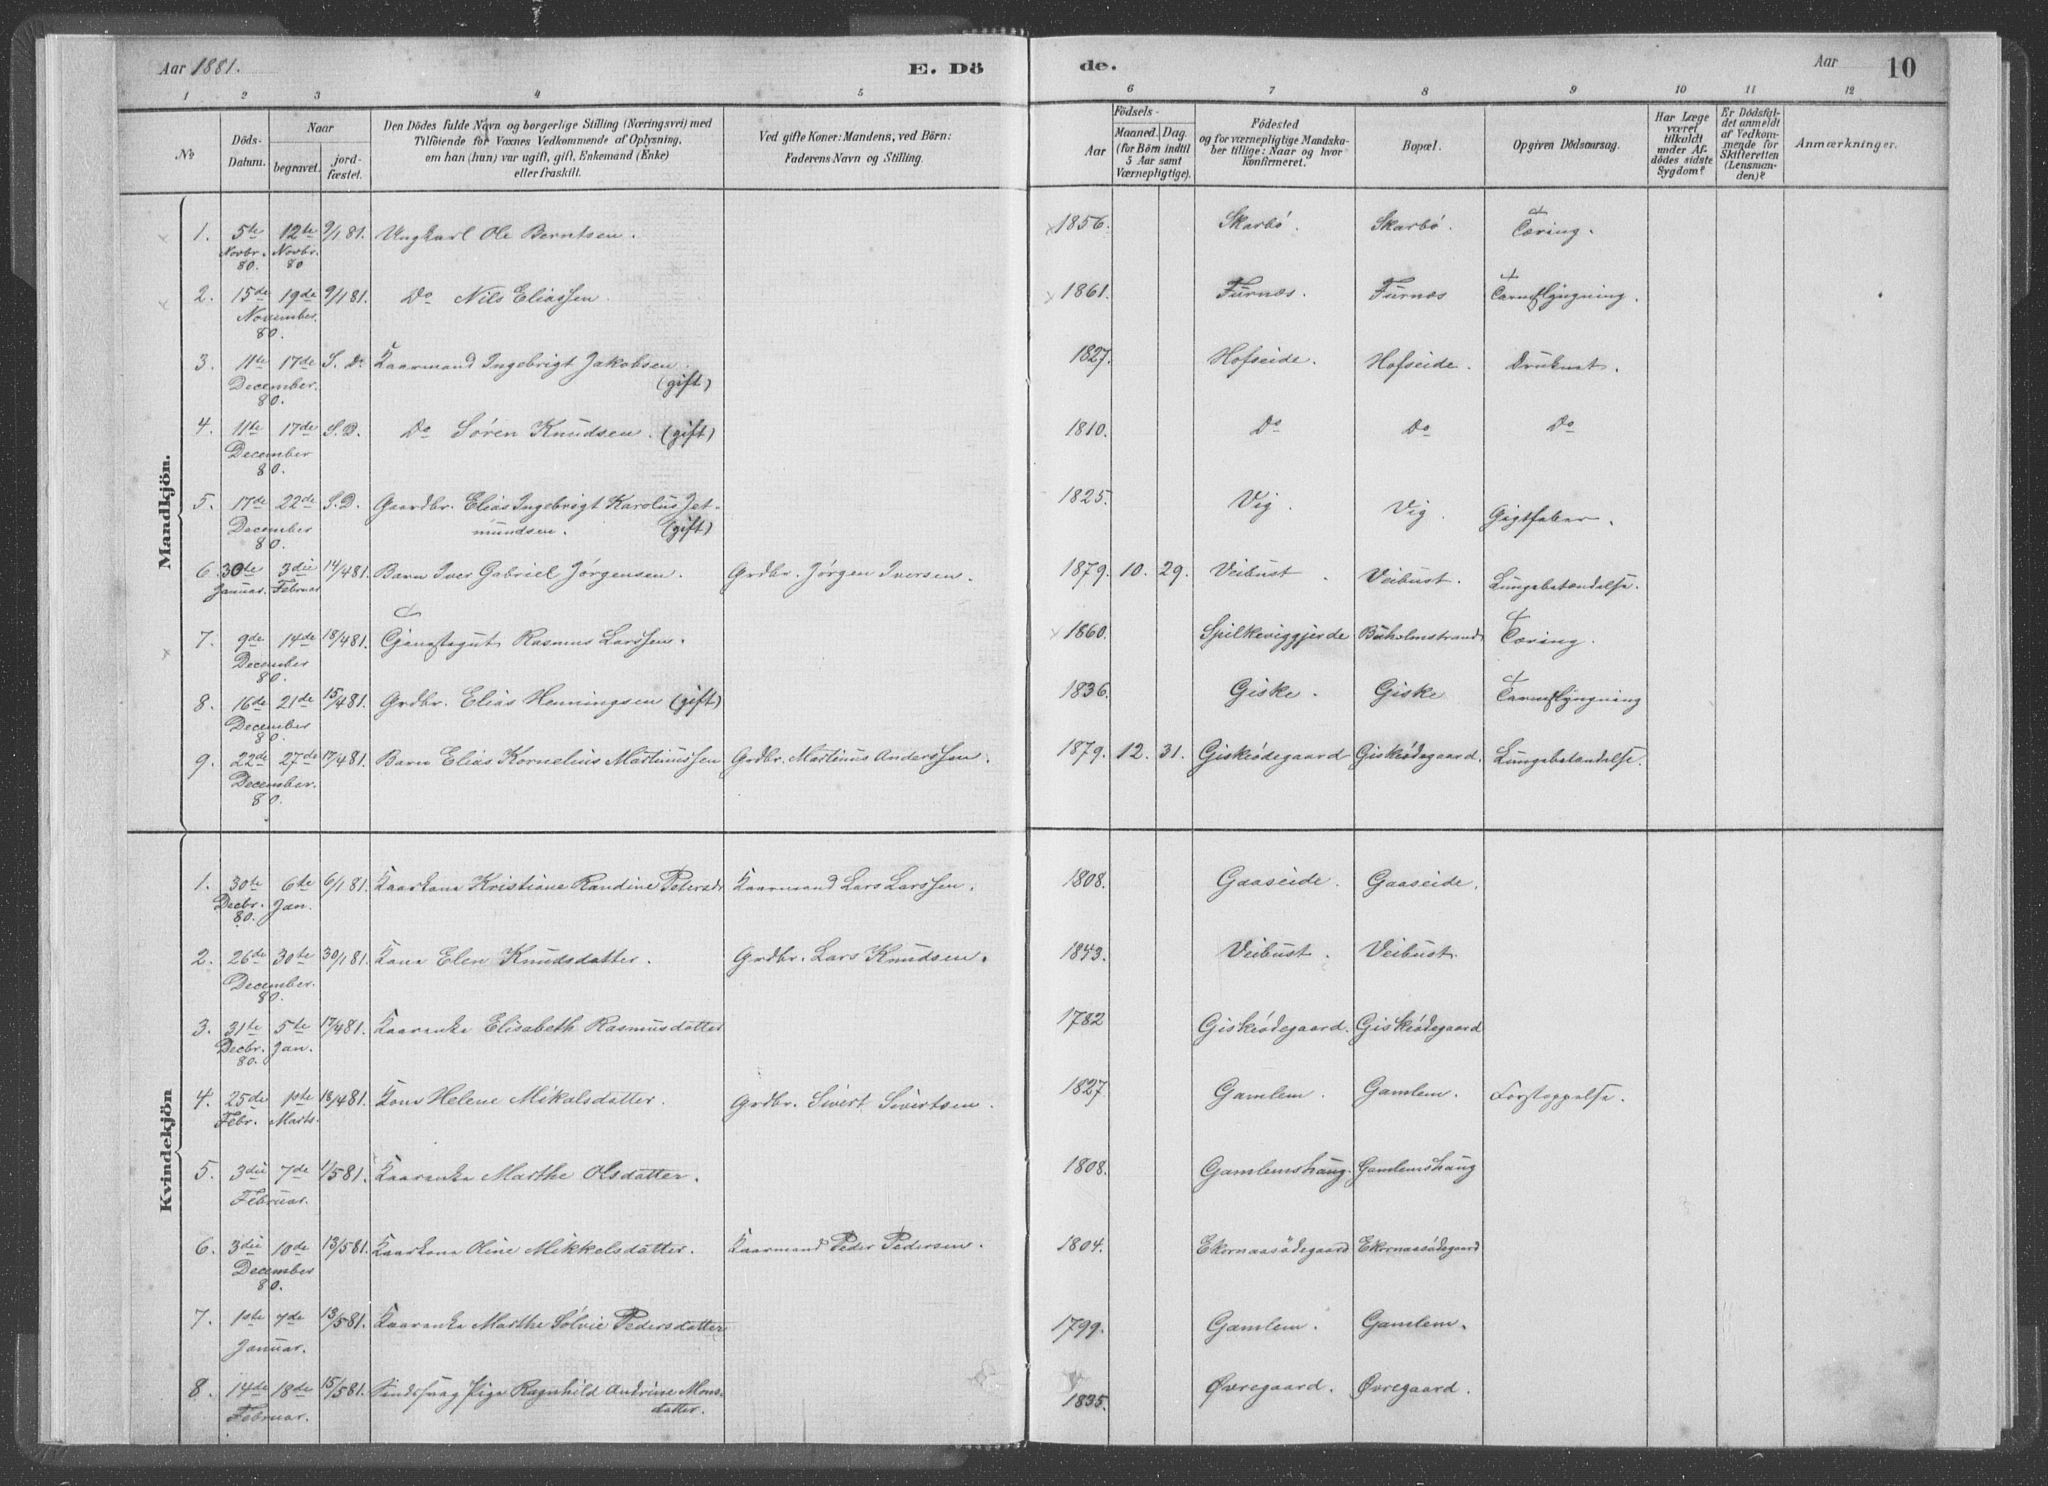 Aar 1881.
E. Dö
de.
Aar
10
1 2 3 4 5 6 7 8 9 10 11 12
No
Döds-Datum.
Naar
begravet.
jord-fæstet.
Den Dödes fulde Navn og borgerlige Stilling (Næringsvei) med
Tilföiende for Voxnes Vedkommende af Oplysning,
om han (hun) var ugift, gift, Enkemand (Enke)
eller fraskilt.
Ved gifte Koner: Mandens, ved Börn:
Faderens Navn og Stilling.
Födsels-
Aar
Maaned. Dag.
(for Börn indtil
5 Aar samt
Værnepligtige).
Födested
og for værnepligtige Mandska-
ber tillige: Naar og hvor
Konfirmeret.
Bopæl.
Opgiven Dödsaarsag.
Har Læge
været
tilkaldt
under Af-
dödes sidste
Sygdom?
Er Dödsfal-
det anmeldt
af Vedkom-
mende for
Skifteretten
(Lensman-
den)?
Anmærkninger.
Mandkjön.
1. 5te Novbr. 80. 12te Novbr. 80 9/1 81. Ungkarl Ole Berntsen. 1856. Skarbö. Skarbö. Tæring.
2. 15de 19de November. 80. 9/1 81. Do Nils Eliassen. 1861. Furnæs. Furnæs Tarmslyngning.
3. 11te 17de December. 80. S. D. Kaarmand Ingebrigt Jakobsen. (gift) 1827. Hofseide. Hofseide. Druknet.
4. 11te 17de December 80. S. D. Do Sören Knudsen. (gift) 1810. Do Do Do
5. 17de 22de December 80. S. D. Gaardbr. Elias Ingebrigt Karolus Jet-
mundsen. (gift) 1825. Vig. Vig. Gigtfeber.
6. 30te Januar. 3die Februar 14/4 81. Barn Iver Gabriel Jörgensen. Grdbr. Jörgen Iversen. 1879. 10. 29. Veibust. Veibust. Lungebetændelse.
7. 9de 14de December 80. 18/4 81. Tjenestegut Rasmus Larssen. 1860. Spilkeviggjerde Buholmstrand Tæring.
8. 16de 21de December 80. 15/4 81. Grdbr. Elias Henningsen (gift) 1836. Giske. Giske Tarmslyngning
9. 22de 27de December. 80. 17/4 81. Barn Elias Kornelius Martinussen Grdbr. Martinus Anderssen. 1879. 12. 31. Giskeödegaard Giskeödegaard. Lungebetændelse.
Kvindekjön
1. 30te Decbr. 80. 6te Jan. 6/1 81. Kaarkone Kristiane Randine Petersdr Kaarmand Lars Larssen. 1808. Gaaseide. Gaaseide.
2. 26de 30te December. 80. 30/1 81. Kone Elen Knudsdatter. Grdbr. Lars Knudsen. 1843. Veibust. Veibust.
3. 31te Decbr. 80. 5te Jan. 17/4 81. Kaarenke Elisabeth Rasmusdatter 1782 Giskeödegaard. Giskeödegaard
4. 25de Febr. 1ste Marts. 18/4 81. Kone Helene Mikalsdatter. Grdbr. Sivert Sivertsen. 1827. Gamlem. Gamlem. Forstoppelse.
5. 3die 7de Februar. 1/5 81. Kaarenke Marthe Olsdatter. 1808. Gamlemshaug. Gamlemshaug
6. 3die 10de December 80. 13/5 81. Kaarkone Oline Mikkelsdatter. Kaarmand Peder Pedersen. 1804. Ekornaasödegaard Ekornaasödegaard
7. 1ste 7de Januar. 13/5 81. Kaarenke Marthe Sölvie Pedersdatter 1799. Gamlem. Gamlem.
8. 14de 18de Februar. 15/5 81. Sindssvag Pige Ragnhild Andrine Mons-
datter. 1835. Øvregaard. Øvregaard.